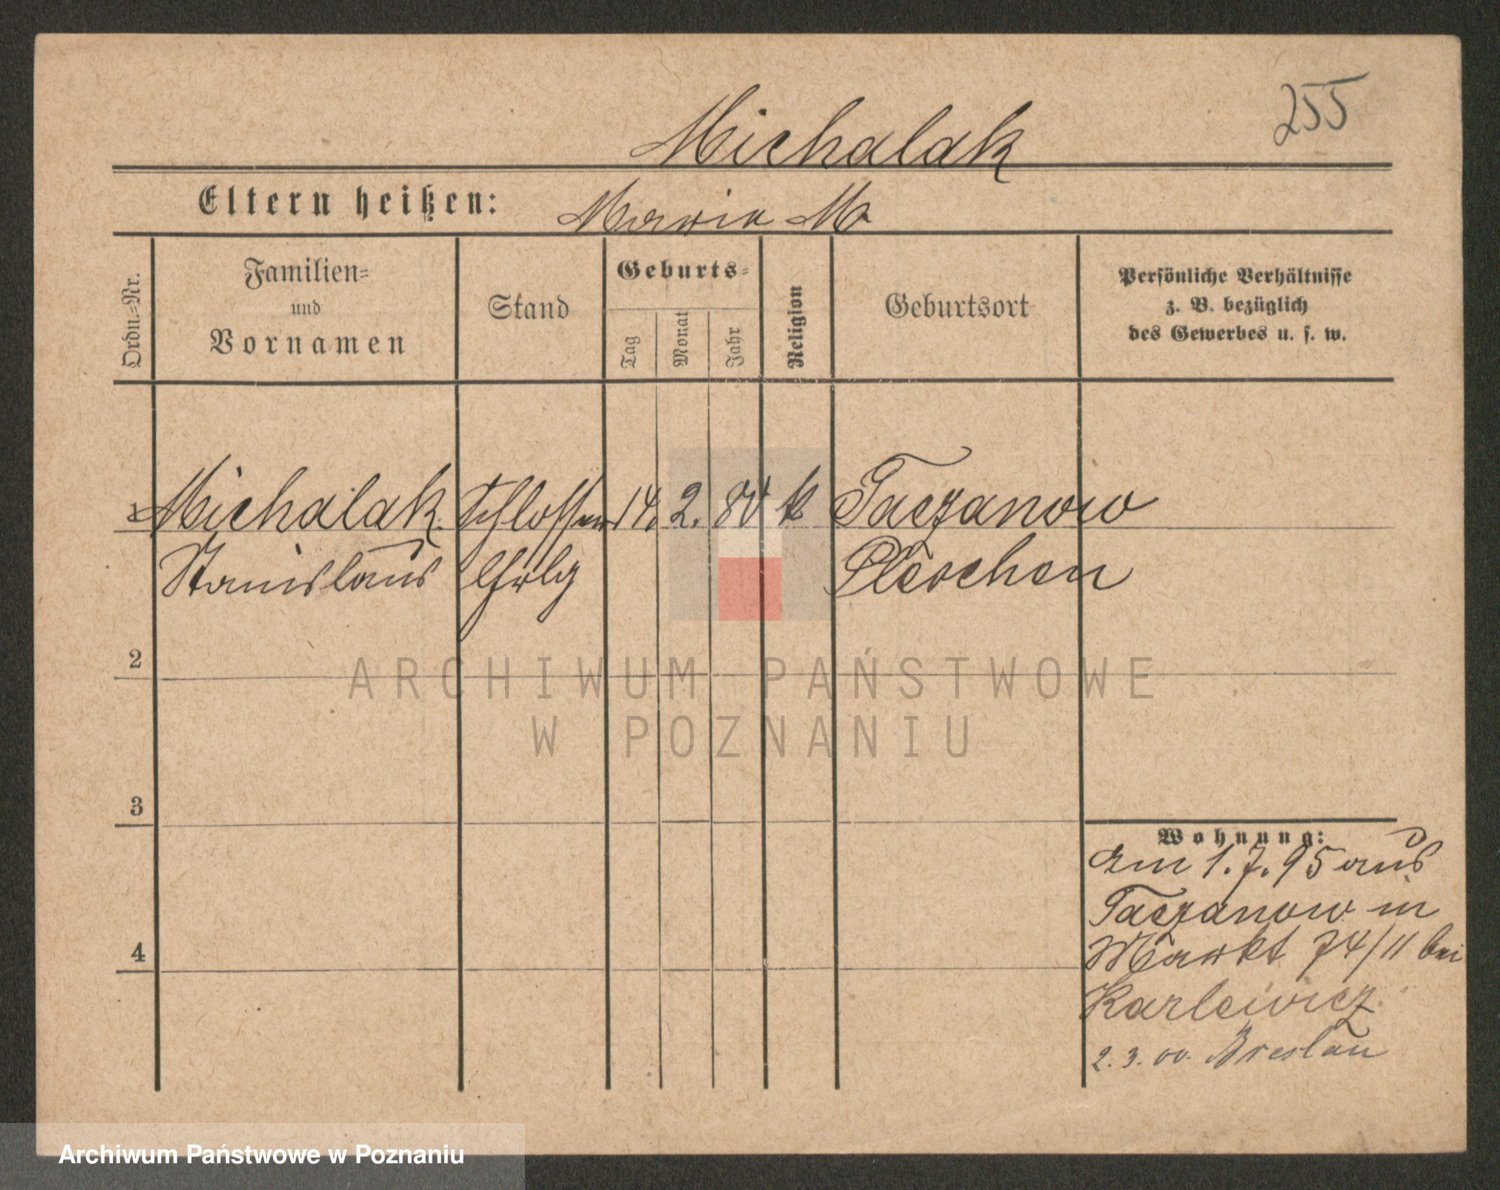 255
Michalak
Eltern heißen: Maria M
Ordn.=Nr.
Familien=
und
Vornamen
Stand
Geburts=
Tag
Monat
Jahr
Religion
Geburtsort
Persönliche Verhältnisse
z. B. bezüglich
des Gewerbes u. s. w.
1 Michalak Schlosser 14. 2. 80 k Taczanow
Stanislaus Lhrlg Pleschen
2
3
4
Wohnung:
am 1.7.95 aus
Taczanow in
Markt 74/11 bei
Karlewicz
2.3.00. Breslau
ARCHIWUM PAŃSTWOWE
W POZNANIU
Archiwum Państwowe w Poznaniu